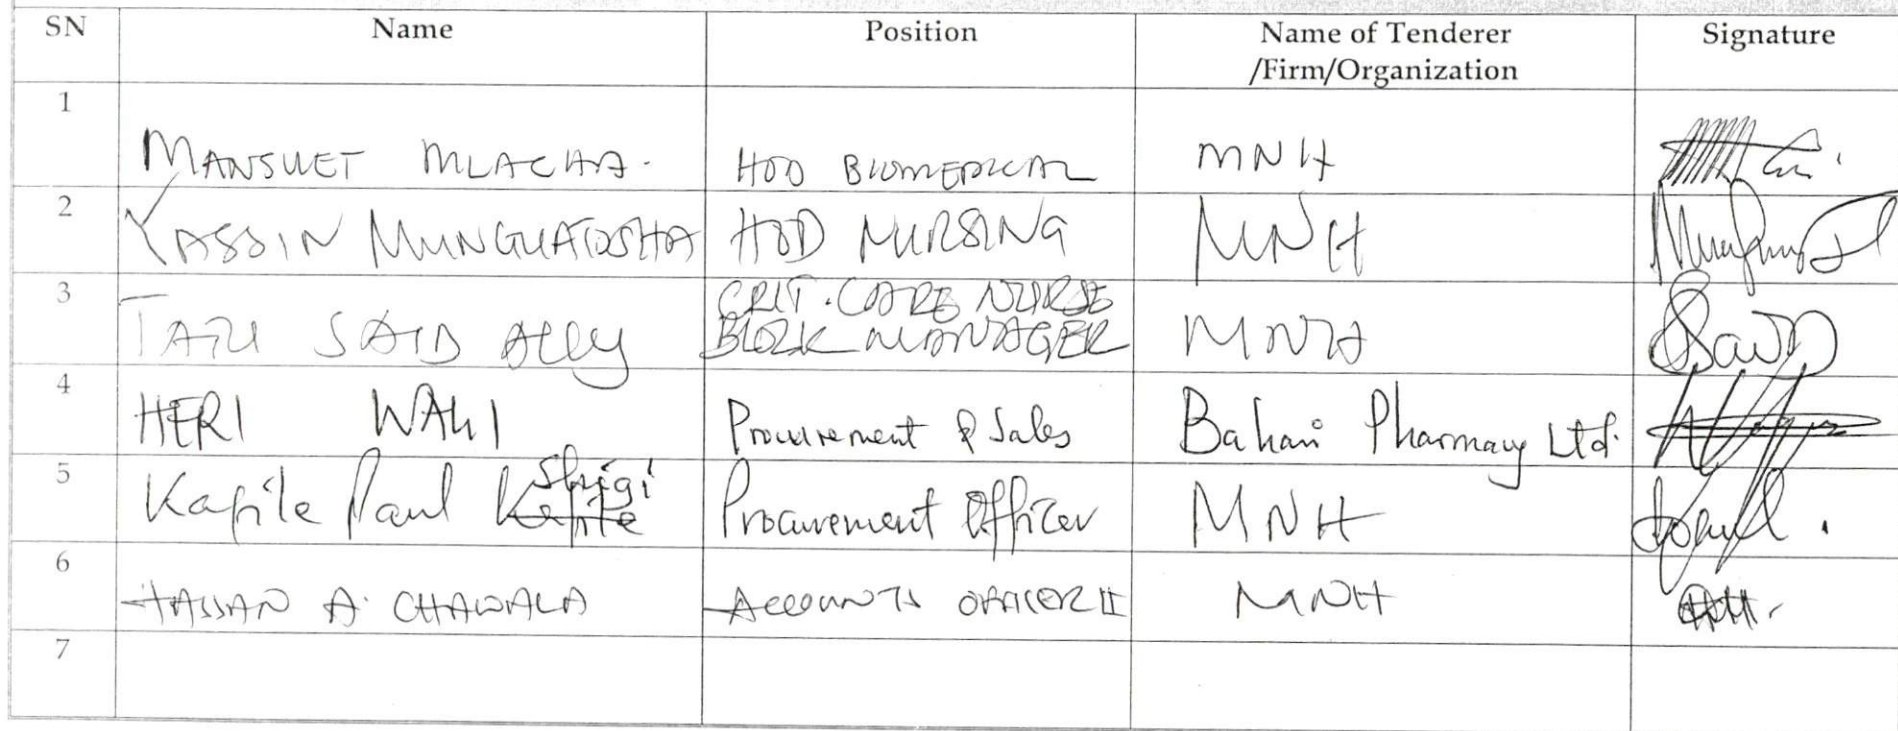 SN Name Position Name of Tenderer Signature
/Firm/Organization
1 MANSUET MLACHA. HOD BIOMEDICAL MNH
2 YASSIN MUNGUATOSHA HOD NURSING MNH
3 CRIT. CARE NURSE
SAID ALLY BLOCK MANAGER MNH
4 HERI WALI Procurement & Sales Bahari Pharmacy Ltd.
5 Shigi
Kafile Paul Procurement Officer MNH
6 HASSAN A. CHAWALA ACCOUNTS OFFICER II MNH
7